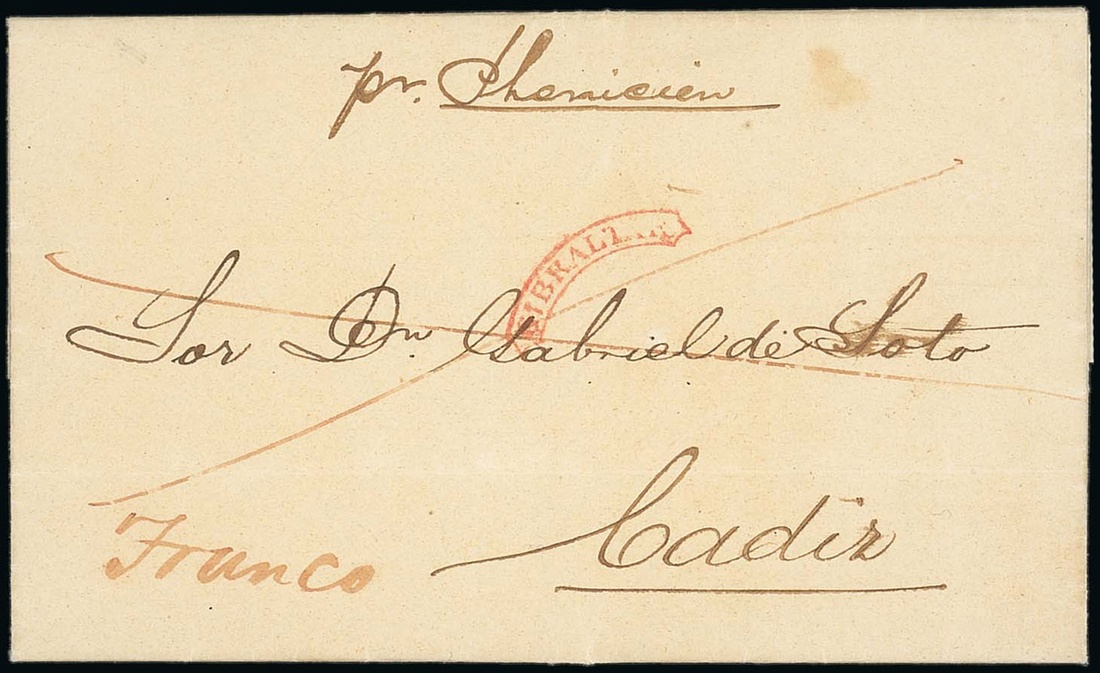 pr. Phenicien
GIBRALTAR
Sor Dn. Gabriel de Soto
Franco
Cadiz